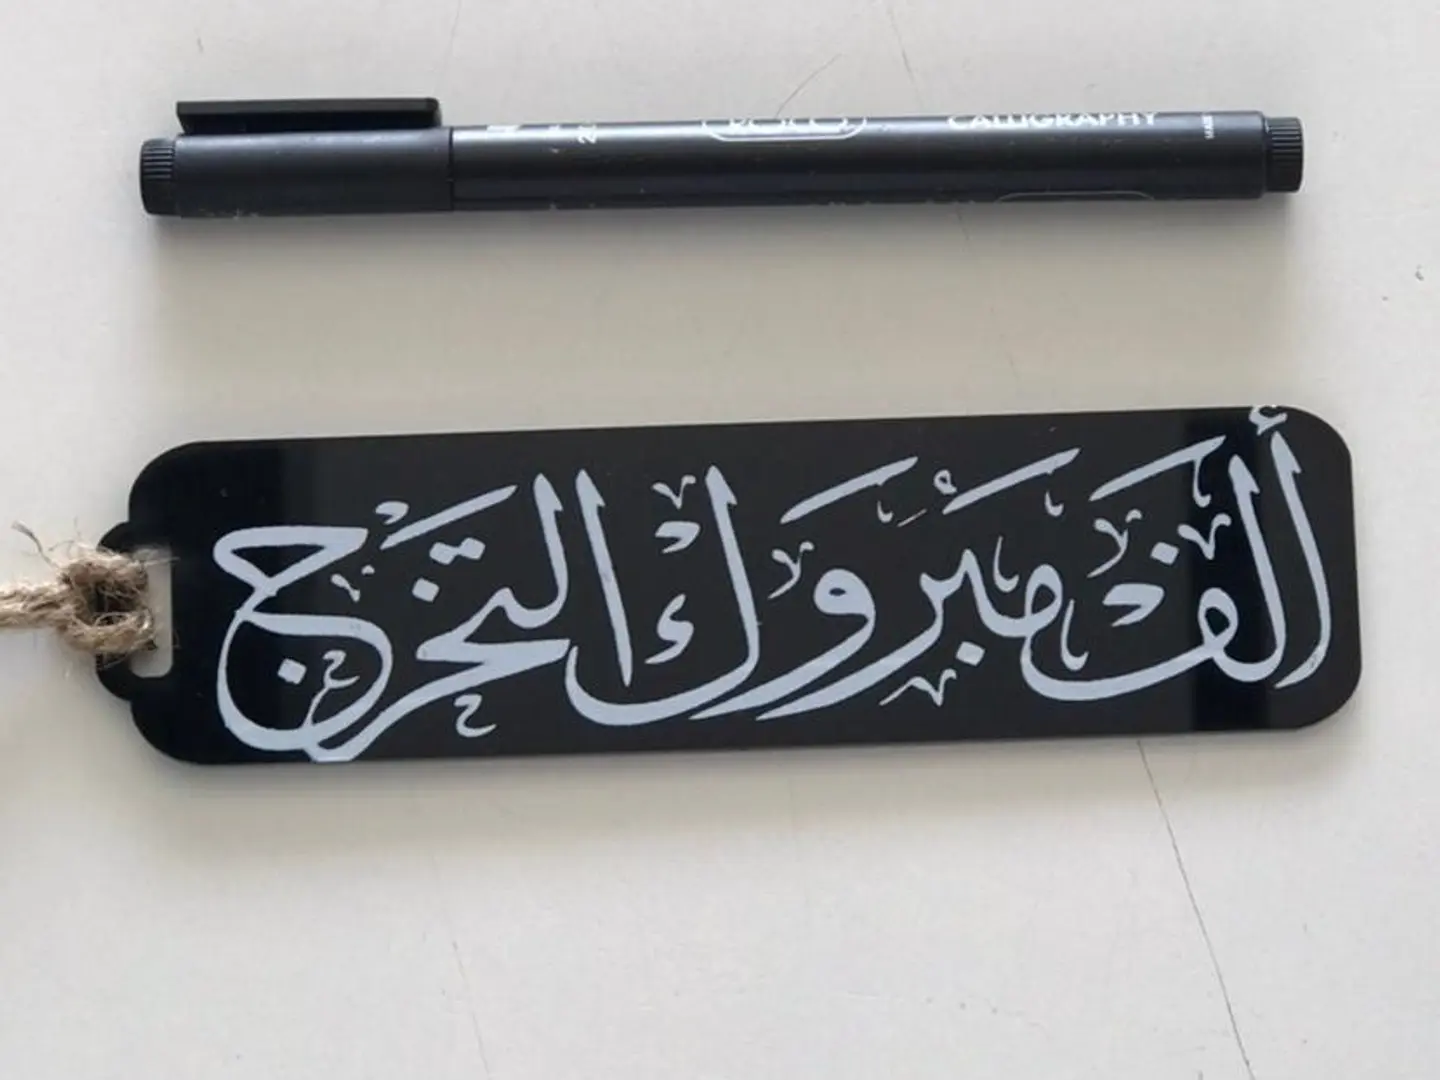 CALLIGRAPHY
ألف مبروك التخرج